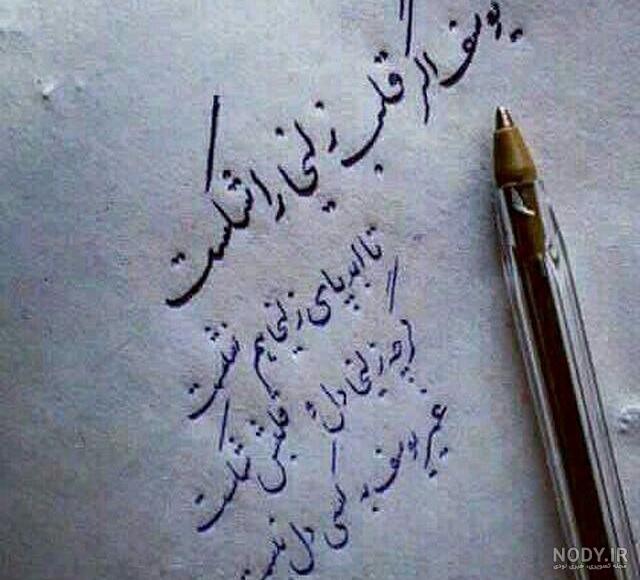 یوسف اگر قلب زلیخا را شکست
تا ابد پای زلیخا هم نشست
گرچه زلیخا دل و قلبش شکست
غیر یوسف به کسی دل نبست
NODY.IR
مجله تصویری، خبری نودی